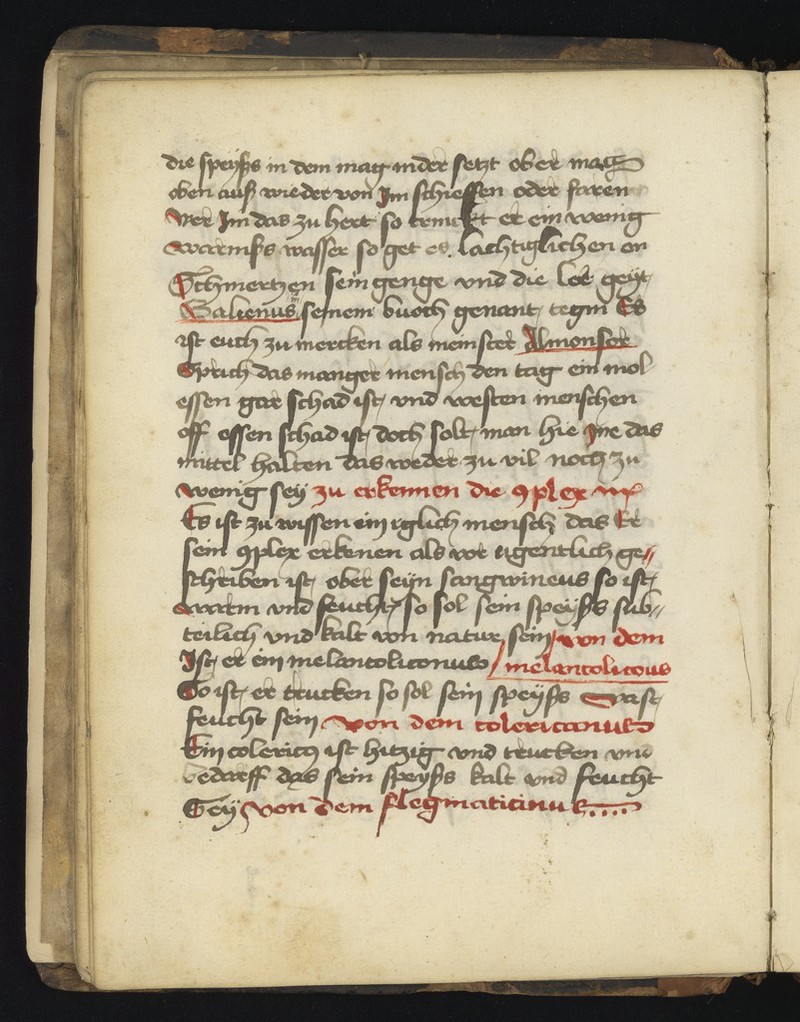 die speyßs in dem mag nider setzt ober mag
oben auß wieder von Im schiessen oder faren
ver Im das zu hert so trinckt er ein wenig
warmßs wasser so get es lachtiglichen on
Schmertzen sein genge vnd die leb geyt
Galienus in seinem buoch genant tegni Es
ist euch zu mercken als meinster Almonsor
Sprich das manger mensch den tag ein mol
essen gar schad ist vnd vesten menschen
off essen schad ist doch solt man hie Ine das
mittel halten das weder zu vil noch zu
wenig sey zu erkennen die 9plex
Es ist zu wissen ein iglich mensch das Er
sein 9plex erkenen als vor eigentlich ge//
schriben ist ober seyn sangwineus so ist
warm vnd feucht so sol sein speyßs sub//
teilich vnd kalt von natur sein von dem
Ist er ein melancoliconuso melancolicous
So ist er trucken so sol sein speyßs vast
feucht sein von dem colericconus
Ein colericus ist hitzig vnd trucken vnd
bedarff das sein speyßs kalt vnd feucht
Sey von dem flegmaticinus....